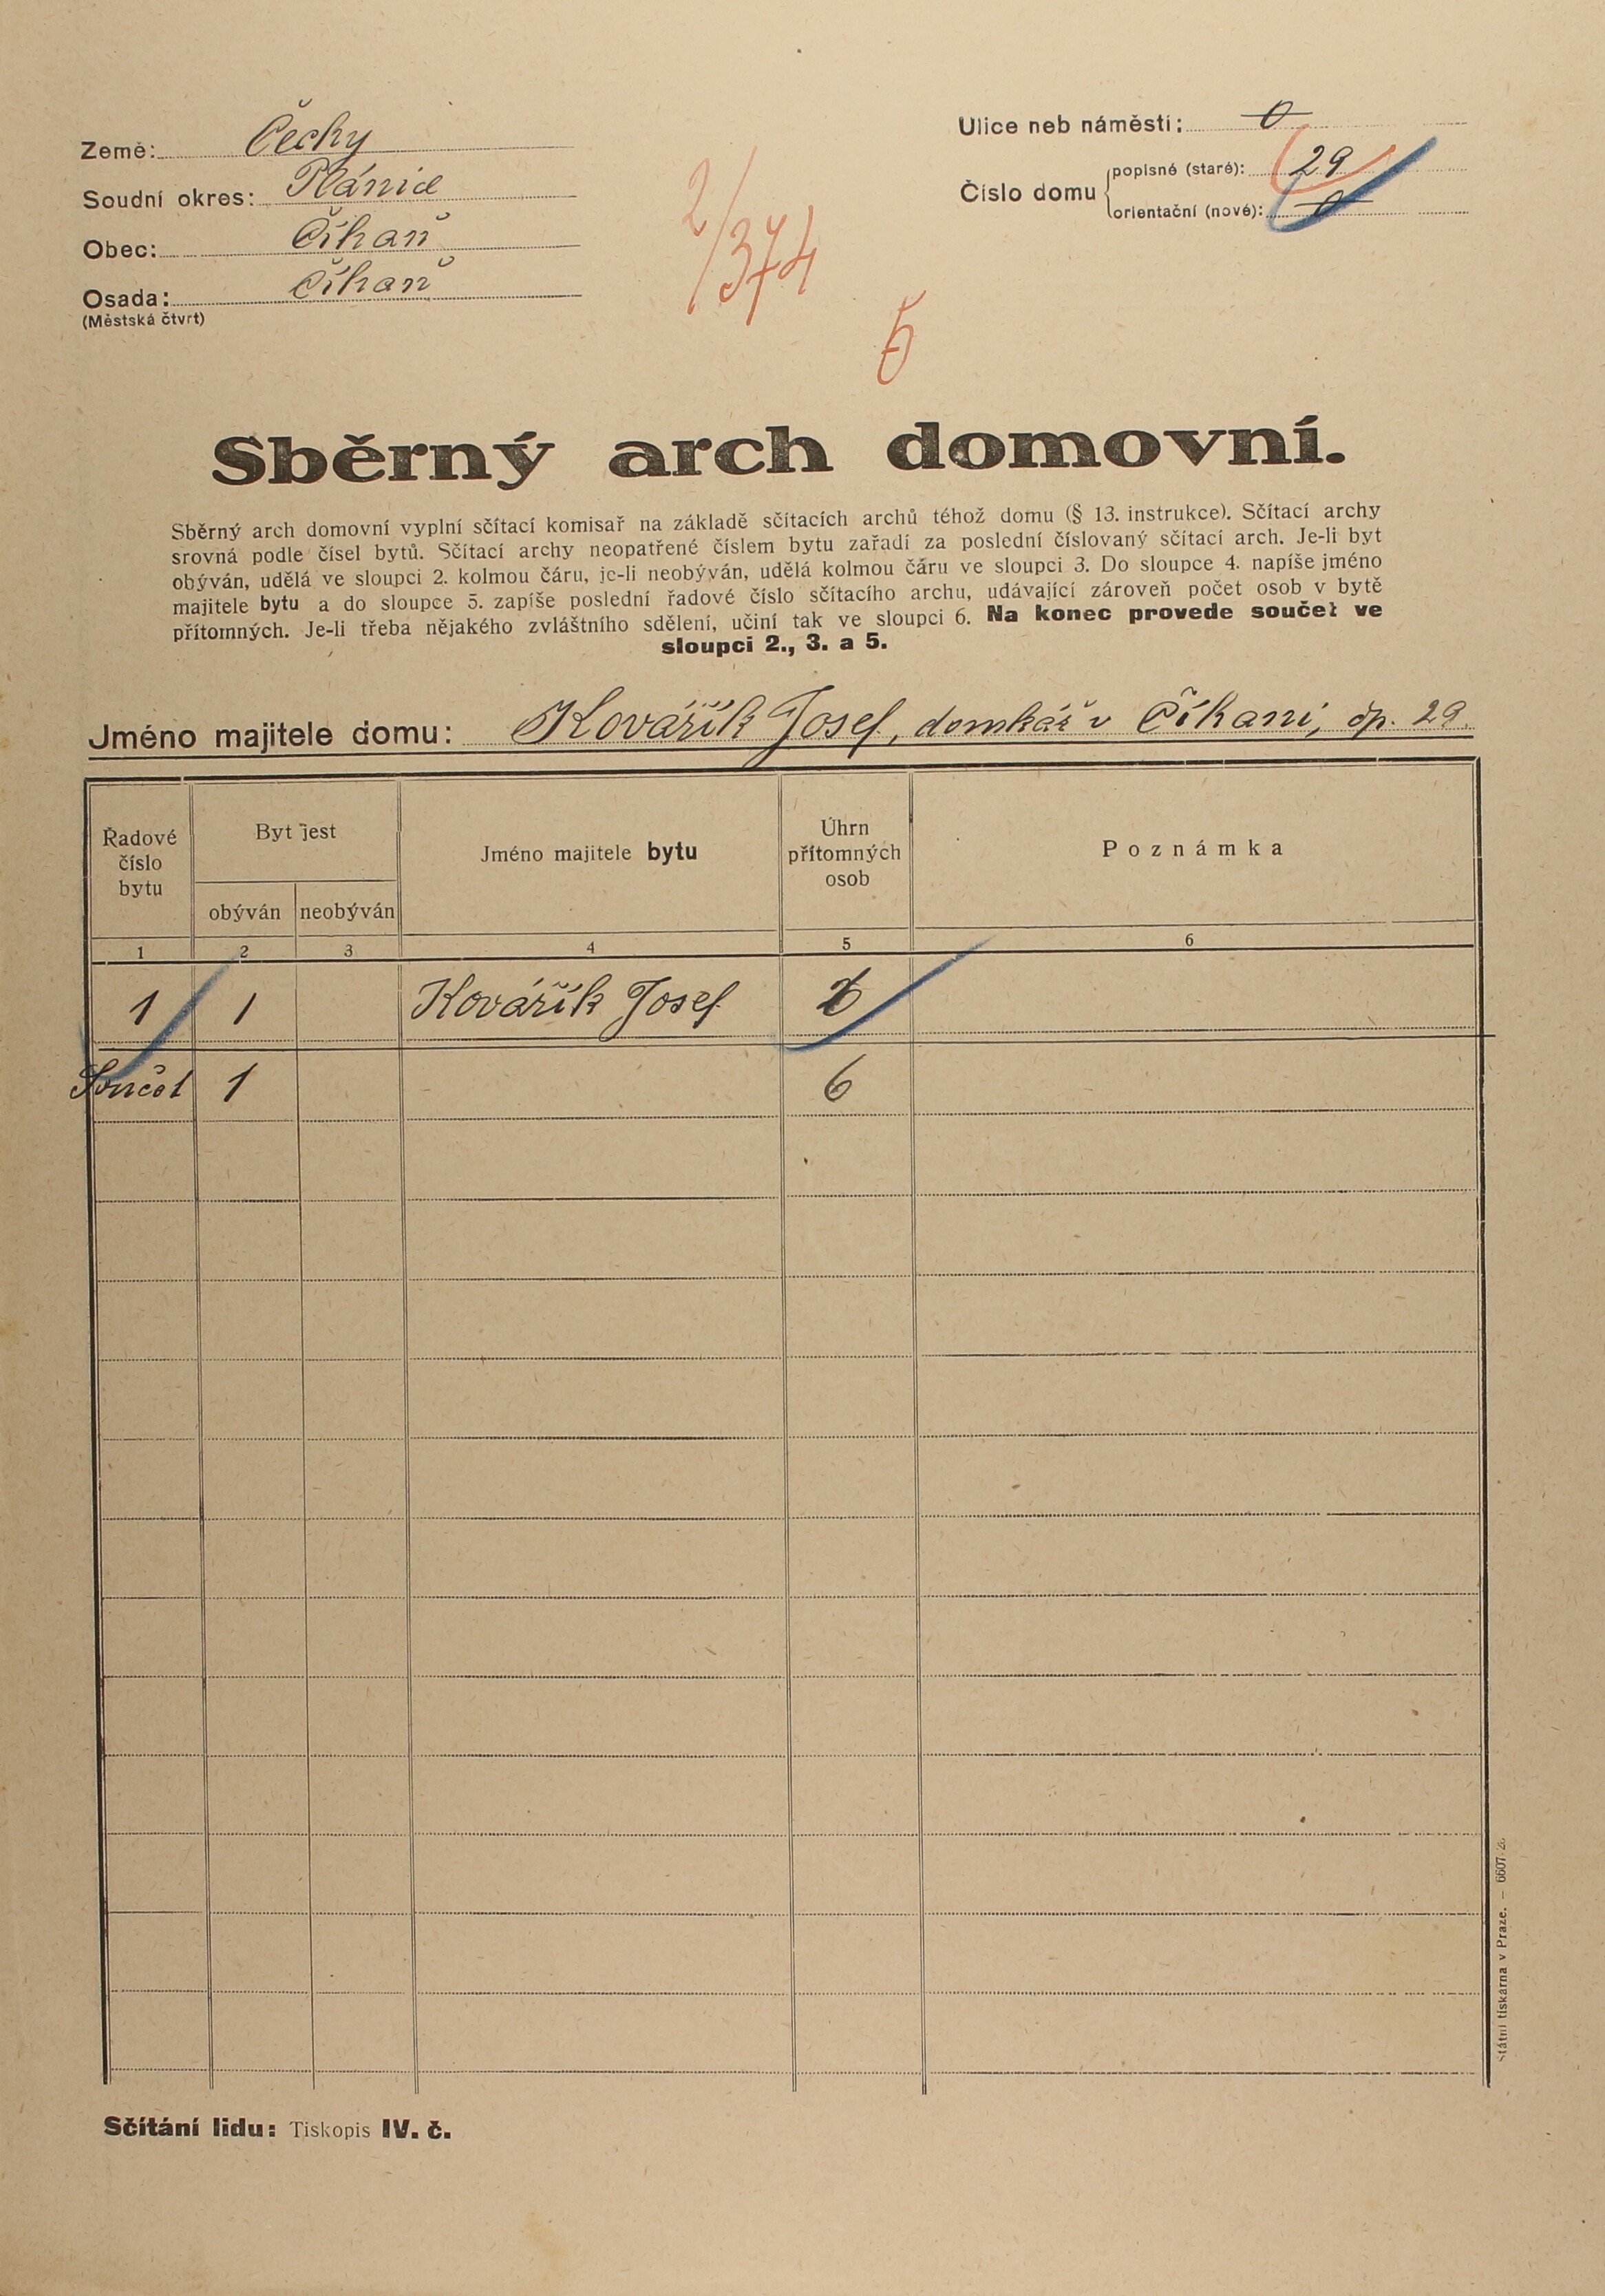 Země: Čechy
Soudní okres: Plánice
Obec: Číhaň
Osada: Číhaň
(Městská čtvrt)
Ulice neb náměstí: 0
Číslo domu
popisné (staré): 29
orientační (nové): 0
2/374
5
Sběrný arch domovní.
Sběrný arch domovní vyplní sčítací komisař na základě sčítacích archů téhož domu (§ 13. instrukce). Sčítací archy
srovná podle čísel bytů. Sčítací archy neopatřené číslem bytu zařadí za poslední číslovaný sčítací arch. Je-li byt
obýván, udělá ve sloupci 2. kolmou čáru, je-li neobýván, udělá kolmou čáru ve sloupci 3. Do sloupce 4. napíše jméno
majitele bytu a do sloupce 5. zapíše poslední řadové číslo sčítacího archu, udávající zároveň počet osob v bytě
přítomných. Je-li třeba nějakého zvláštního sdělení, učiní tak ve sloupci 6. Na konec provede součet ve
sloupci 2., 3. a 5.
Jméno majitele domu: Kovářík Josef, domkář v Číhani, čp. 29.
Řadové číslo bytu
Byt jest
obýván
neobýván
Jméno majitele bytu
Úhrn přítomných osob
Poznámka
1 2 3 4 5 6
1 1 Kovářík Josef 6
Součet 1 6
Státní tiskárna v Praze. — 6607-
Sčítání lidu: Tiskopis IV. č.